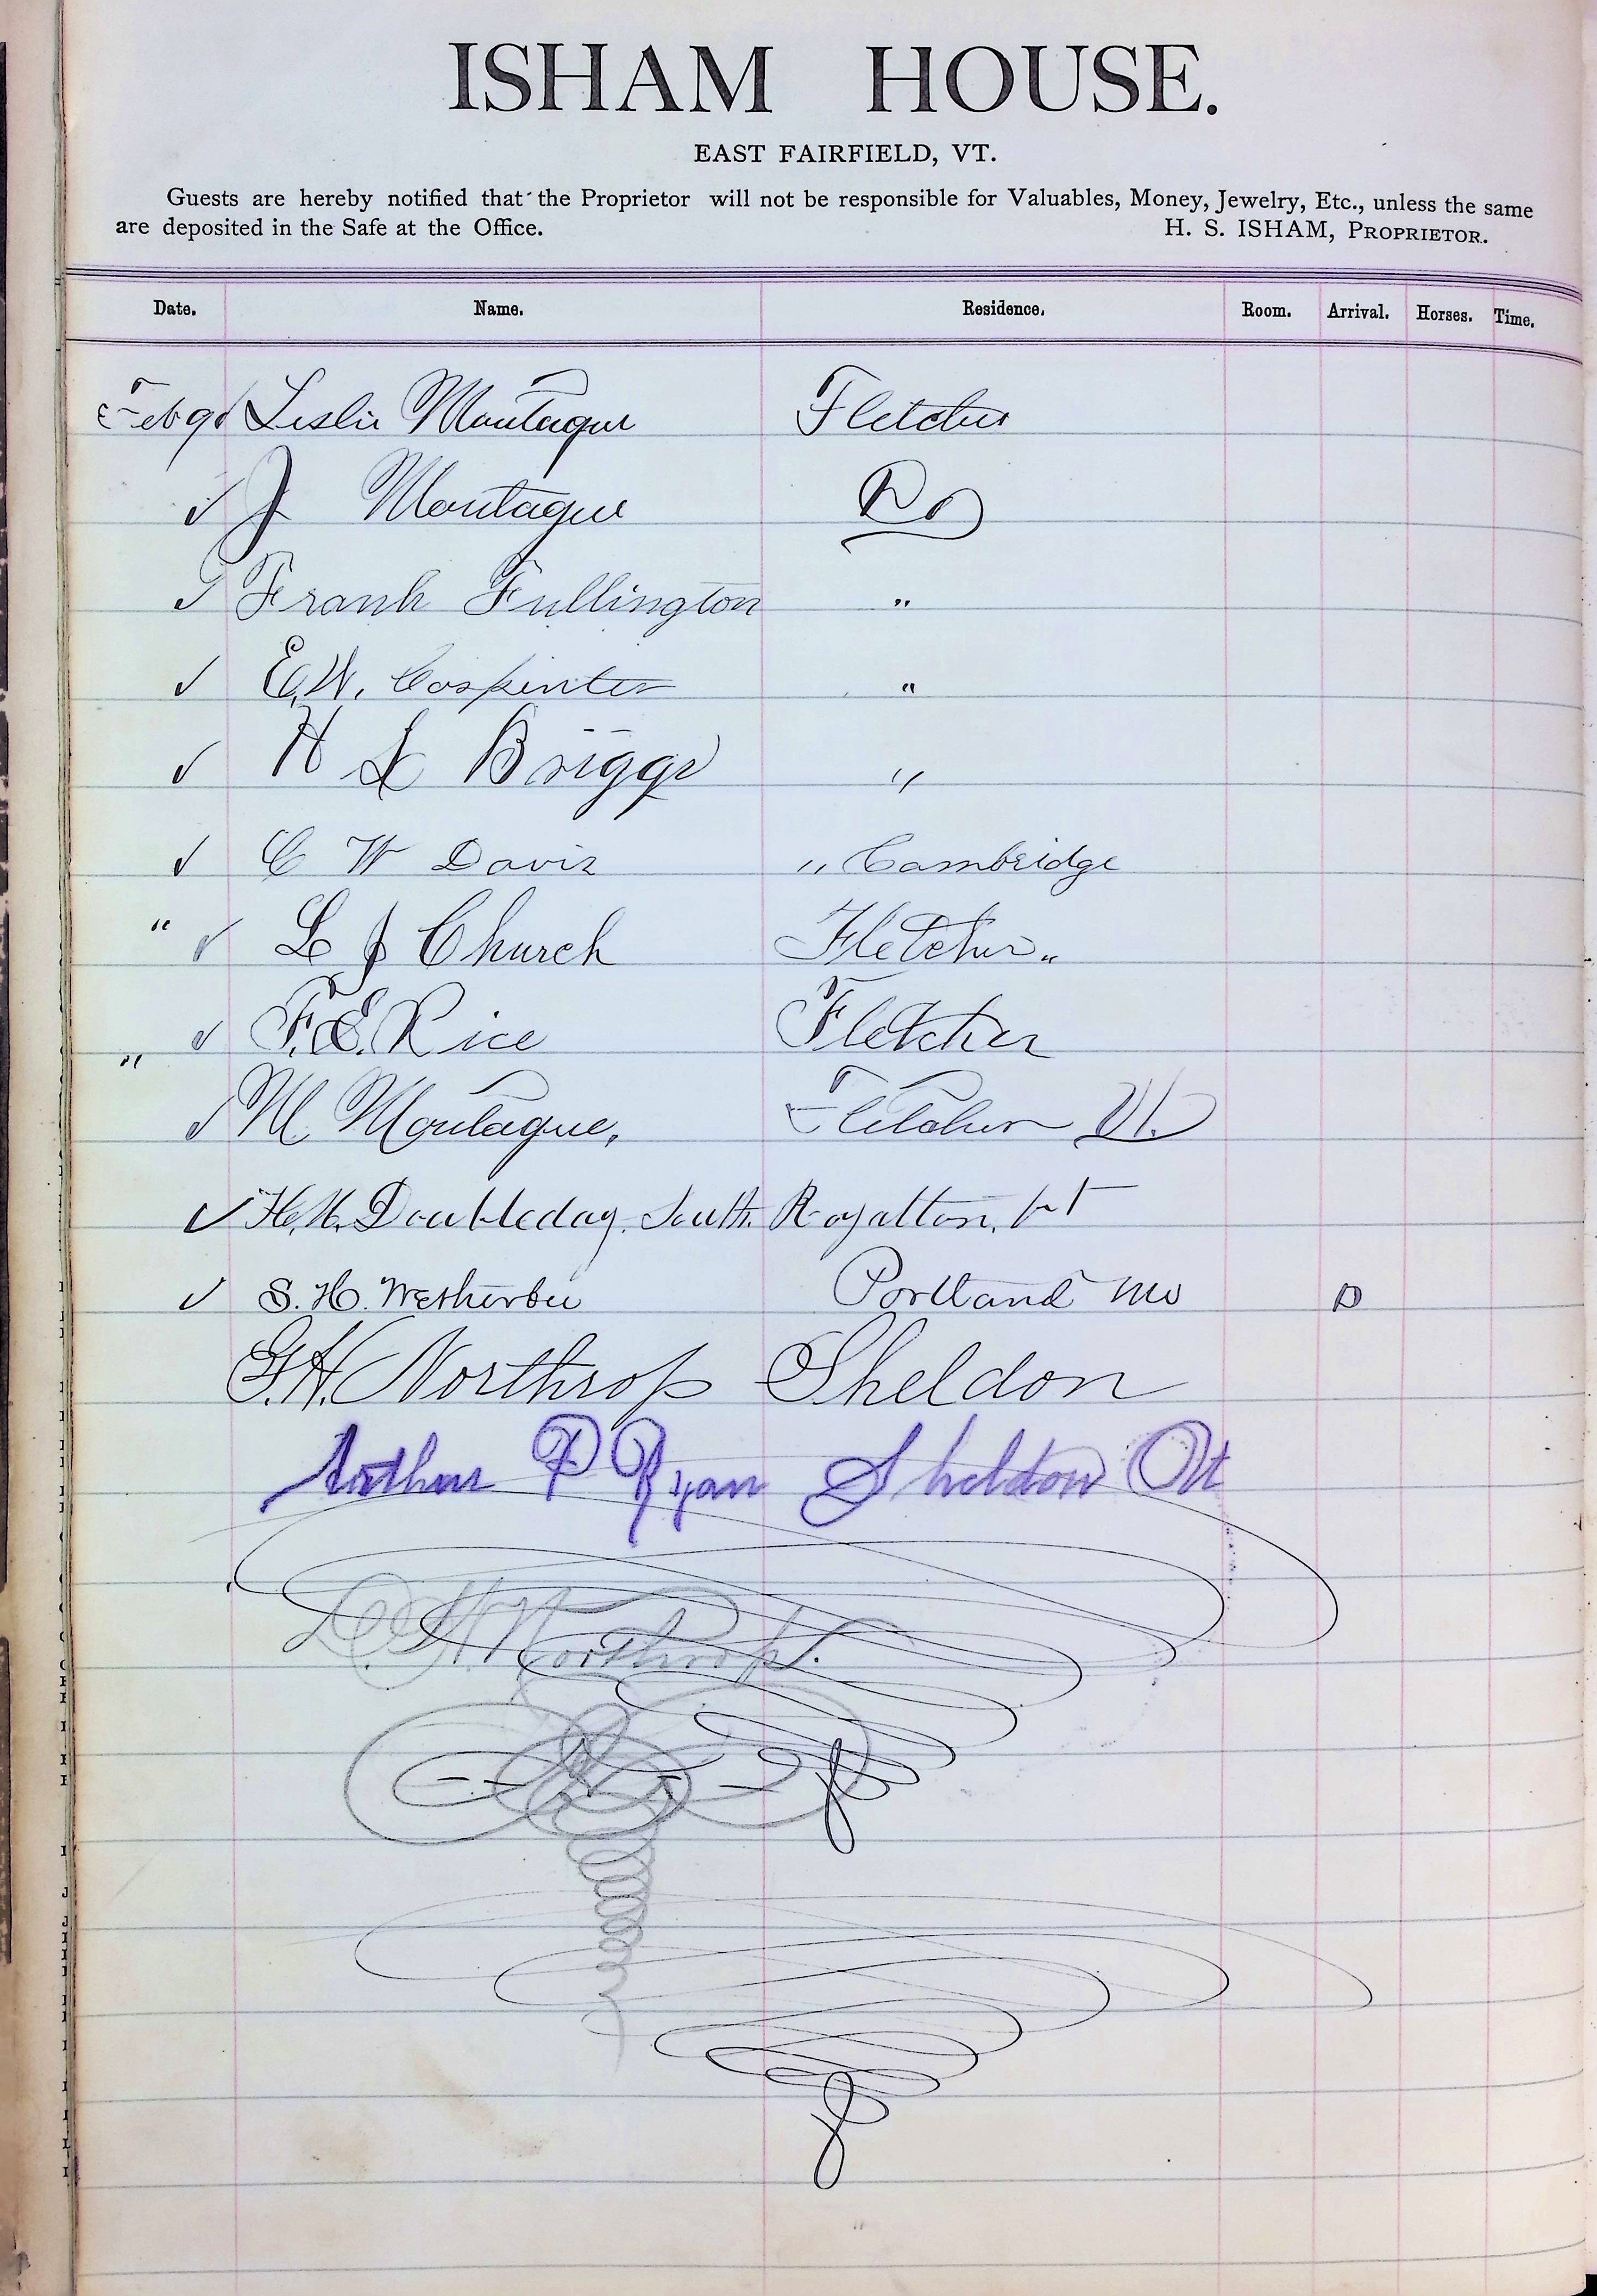 ISHAM HOUSE.
EAST FAIRFIELD, VT.
Guests are hereby notified that the Proprietor will not be responsible for Valuables, Money, Jewelry, Etc., unless the same
are deposited in the Safe at the Office. H. S. ISHAM, PROPRIETOR.
Date. Name. Residence. Room. Arrival. Horses. Time.
Feb 9 ✓ Leslie Montague Fletcher
✓ J Montague Do
✓ Frank Fullington "
✓ E.W. Carpenter "
✓ H L Briggs "
✓ C W Davis " Cambridge
" ✓ L J Church Fletcher "
" ✓ F.E. Rice Fletcher
✓ M Montague, Fletcher Vt.
✓ H.H. Doubleday. South. Royalton, Vt
✓ S. H. Wetherbee Portland Me D
G.H. Northrop Sheldon
Arthur P Ryan Sheldon Vt
H. Northrop.